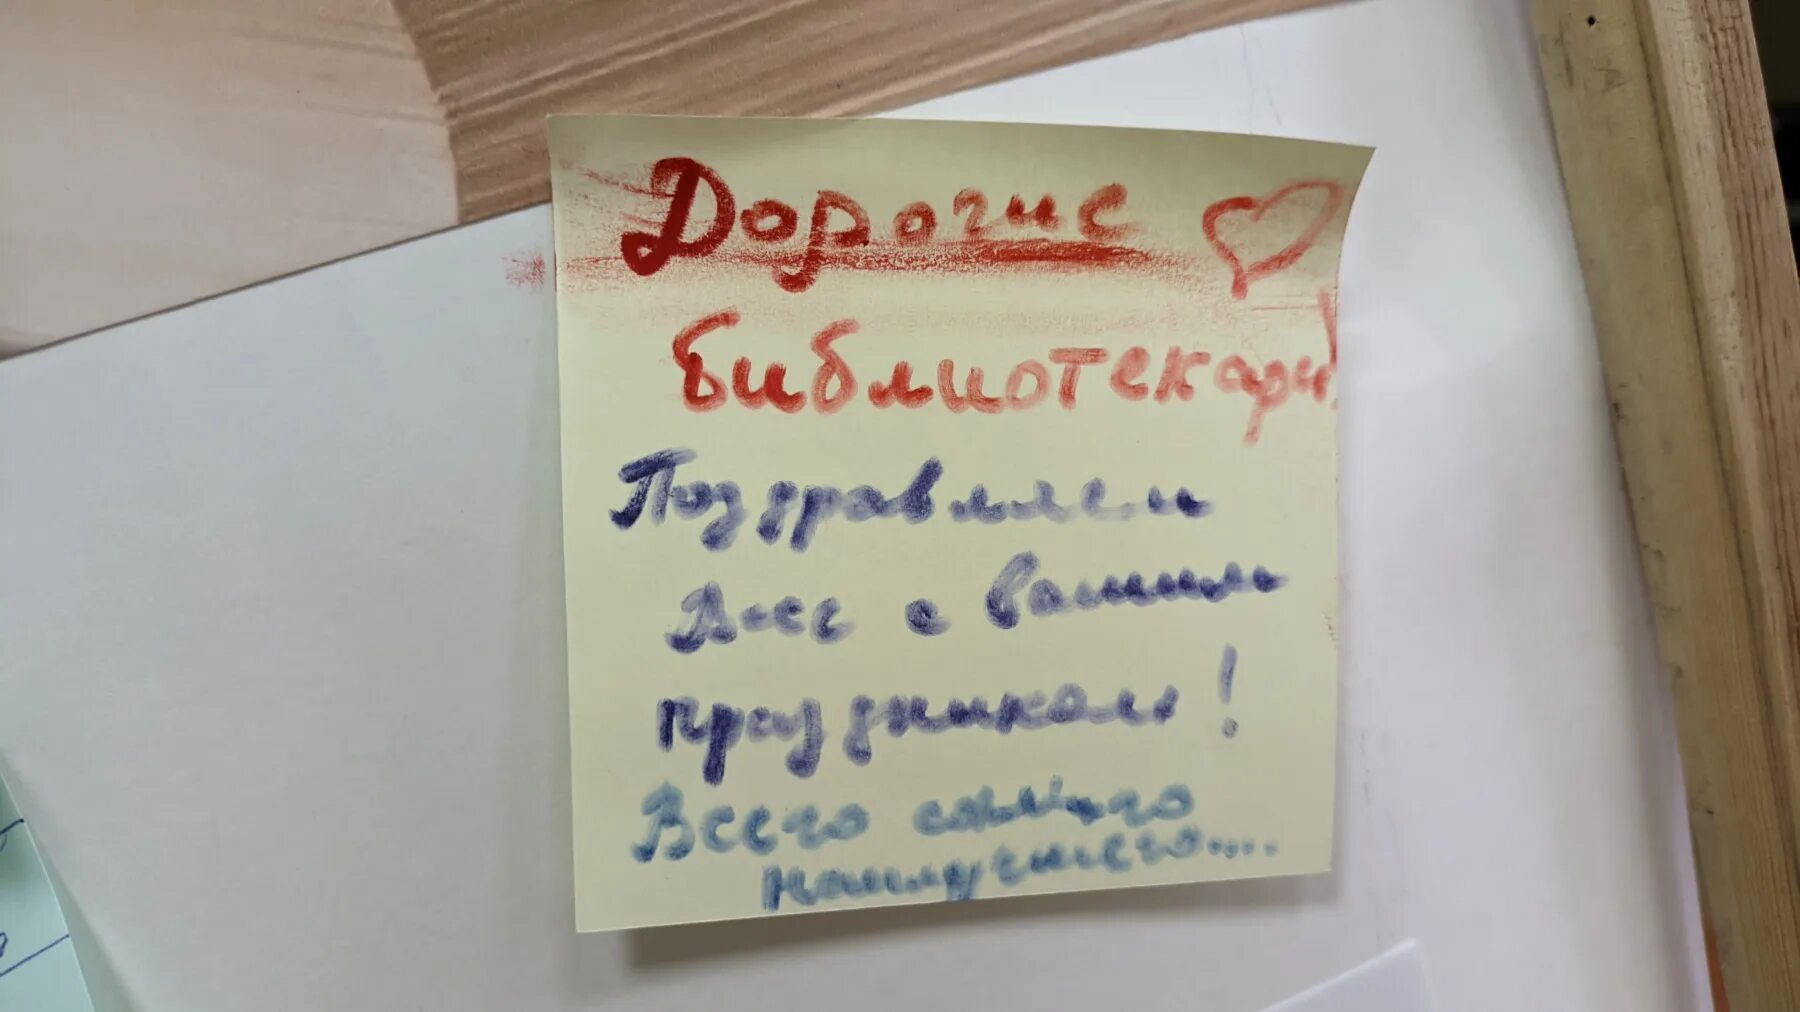 Дорогие
Библиотекари!
Поздравляем
Всех с Вашим
праздником!
Всего самого
наилучшего....